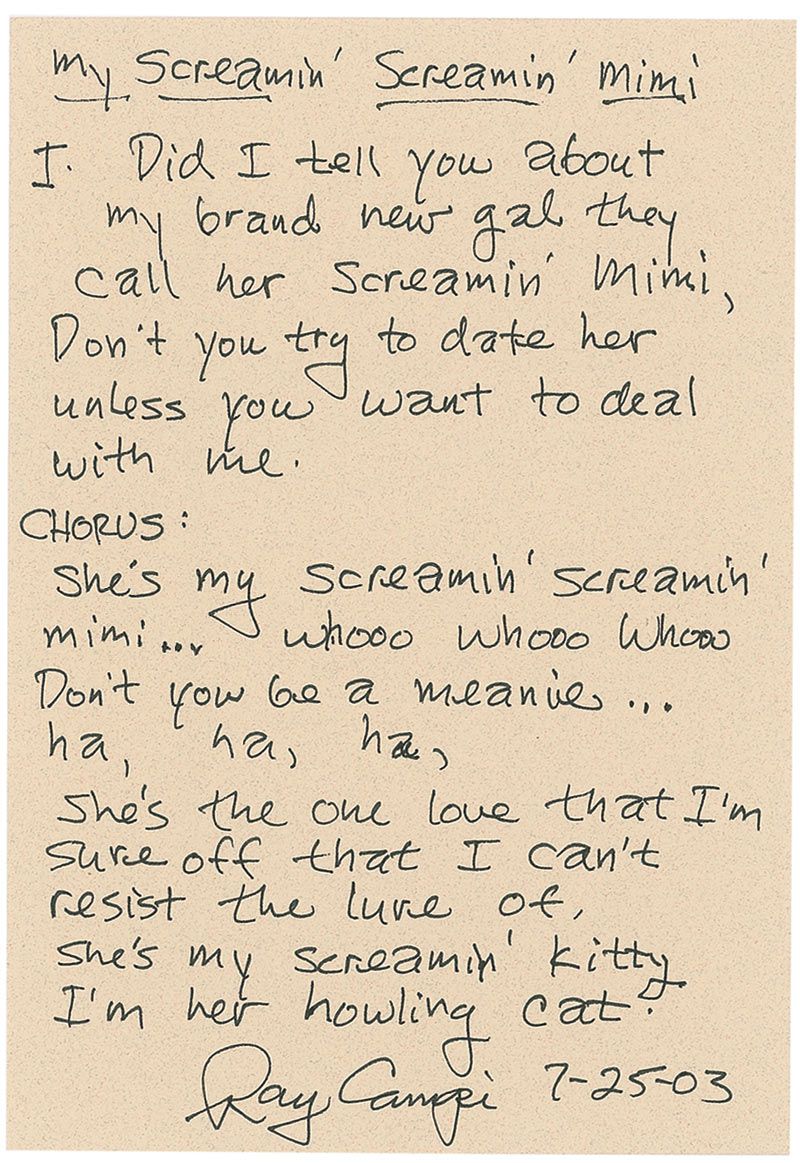 My Screamin' Screamin' Mimi
I. Did I tell you about
my brand new gal they
call her Screamin' Mimi,
Don't you try to date her
unless you want to deal
with me.
CHORUS:
She's my screamin' screamin'
mimi... whooo whooo Whooo
Don't you be a meanie...
ha, ha, ha,
She's the one love that I'm
sure off that I can't
resist the lure of,
She's my screamin' kitty
I'm her howling cat.
Ray Campi 7-25-03